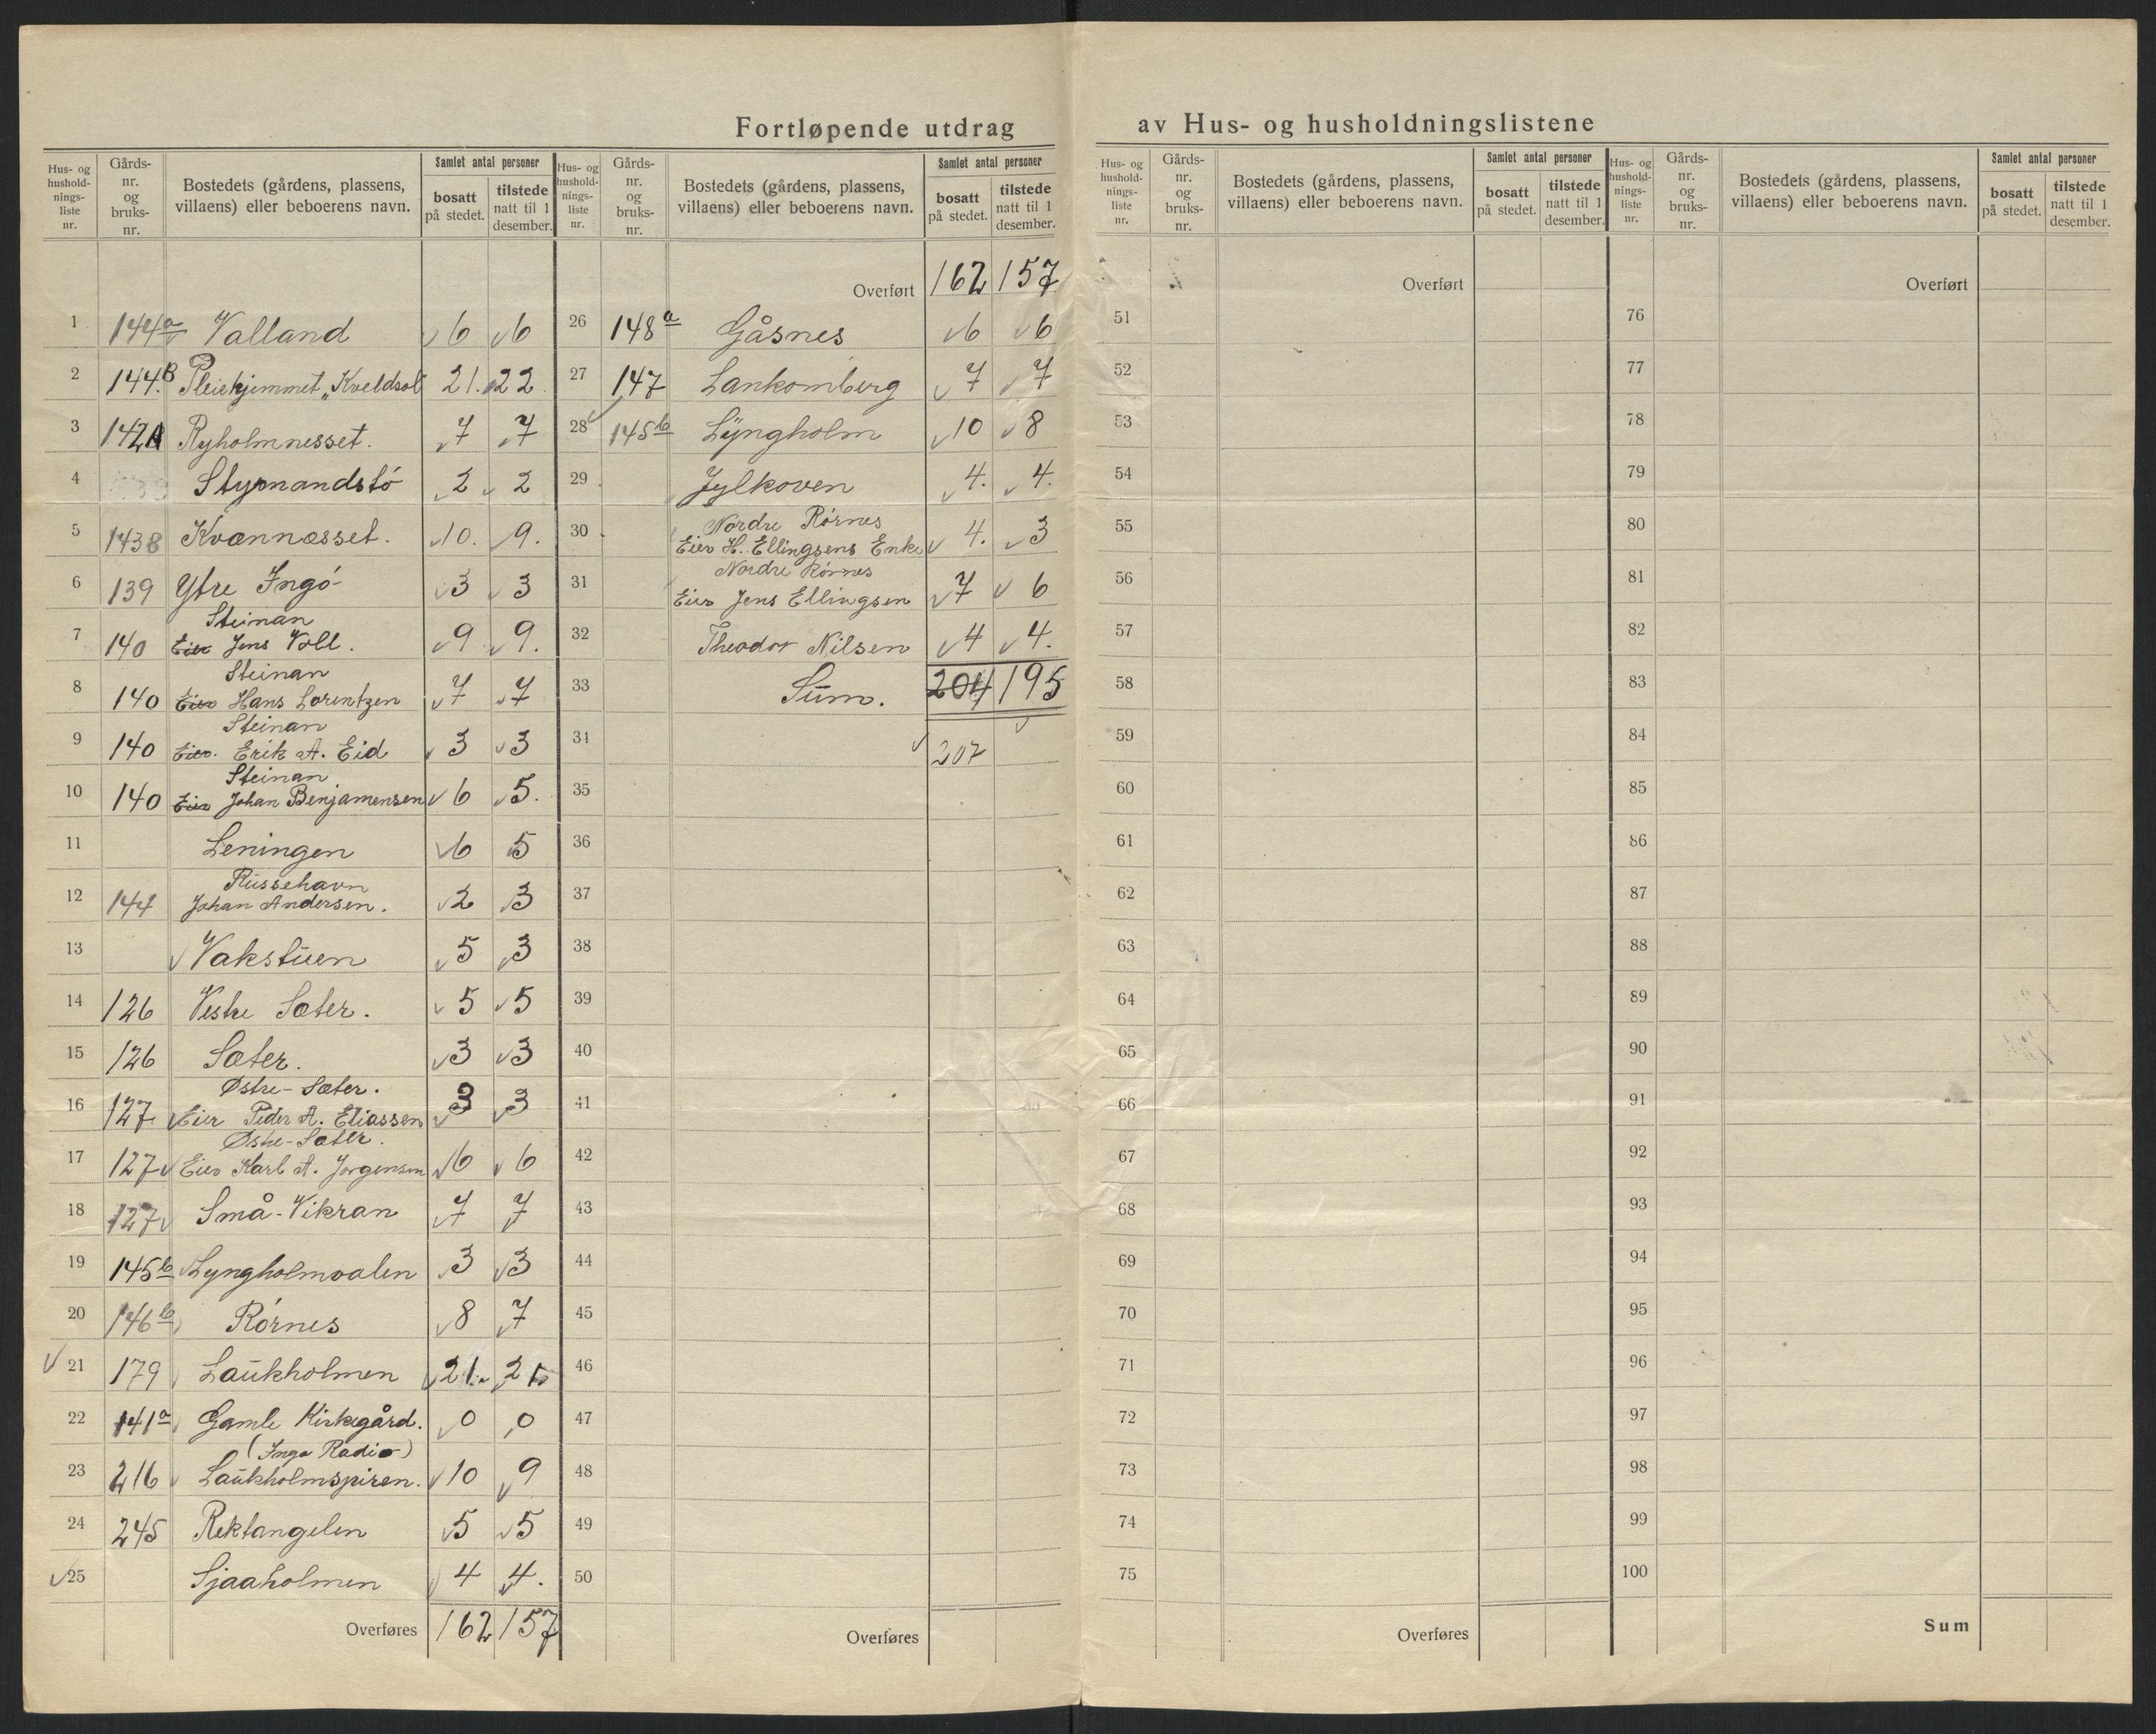 Fortløpende utdrag av Hus- og husholdningslistene
Hus- og husholdnings-liste nr. | Gårds-nr. og bruks-nr. | Bostedets (gårdens, plassens, villaens) eller beboerens navn. | Samlet antal personer | bosatt på stedet. | tilstede natt til 1 desember.
1 144a Valland 6 6
2 144.B Pleiehjemmet "Kveldsol 21. 22
3 142A Ryholmnesset. 7 7
4 Styrmandstö 2 2
5 143B Kvænnæsset. 10. 9.
6 139 Ytre Ingö 3 3
7 140 Steinan
Eier Jens Voll. 9 9.
8 140 Steinan
Eier Hans Lorentzen 7 7
9 140 Steinan
Eier. Erik A. Eid 3 3
10 140 Steinan
Eier Johan Benjamensen 6 5.
11 Leningen 6 5
12 144 Russehavn
Johan Andersen. 2 3
13 Vakstuen 5 3
14 126 Vestre Sæter. 5 5
15 126 Sæter. 3 3
16 127 Østre-Sæter.
Eier Peder A. Eliassen 3 3
17 127 Østre-Sæter.
Eier Karl A. Jørgensen 6 6
18 127 Små-Vikran 7 7
19 145b Lyngholmvalen 3 3
20 146b Rörnes 8 7
21 179 Laukholmen 21 21
22 141a Gamle Kirkegård. 0 0
23 216 (Inga Radio)
Laukholmspiren. 10 9
24 245 Rektangelen 5 5
25 Sjaaholmen 4 4.
Overføres 162 157
Hus- og husholdnings-liste nr. | Gårds-nr. og bruks-nr. | Bostedets (gårdens, plassens, villaens) eller beboerens navn. | Samlet antal personer | bosatt på stedet. | tilstede natt til 1 desember.
Overført 162 157
26 148a Gåsnes 6 6
27 147 Lankomberg 7 7
28 145b Lyngholm 10 8
29 Jylkoven 4. 4.
30 Nordre Rörnes
Eier H. Ellingsens Enke 4. 3
31 Nordre Rörnes
Eier Jens Ellingsen 7 6
32 Theodor Nilsen 4 4.
33 Sum. 204 195
34 207
35
36
37
38
39
40
41
42
43
44
45
46
47
48
49
50
Overføres
Hus- og husholdnings-liste nr. | Gårds-nr. og bruks-nr. | Bostedets (gårdens, plassens, villaens) eller beboerens navn. | Samlet antal personer | bosatt på stedet. | tilstede natt til 1 desember.
Overført
51
52
53
54
55
56
57
58
59
60
61
62
63
64
65
66
67
68
69
70
71
72
73
74
75
Overføres
Hus- og husholdnings-liste nr. | Gårds-nr. og bruks-nr. | Bostedets (gårdens, plassens, villaens) eller beboerens navn. | Samlet antal personer | bosatt på stedet. | tilstede natt til 1 desember.
Overført
76
77
78
79
80
81
82
83
84
85
86
87
88
89
90
91
92
93
94
95
96
97
98
99
100
Sum